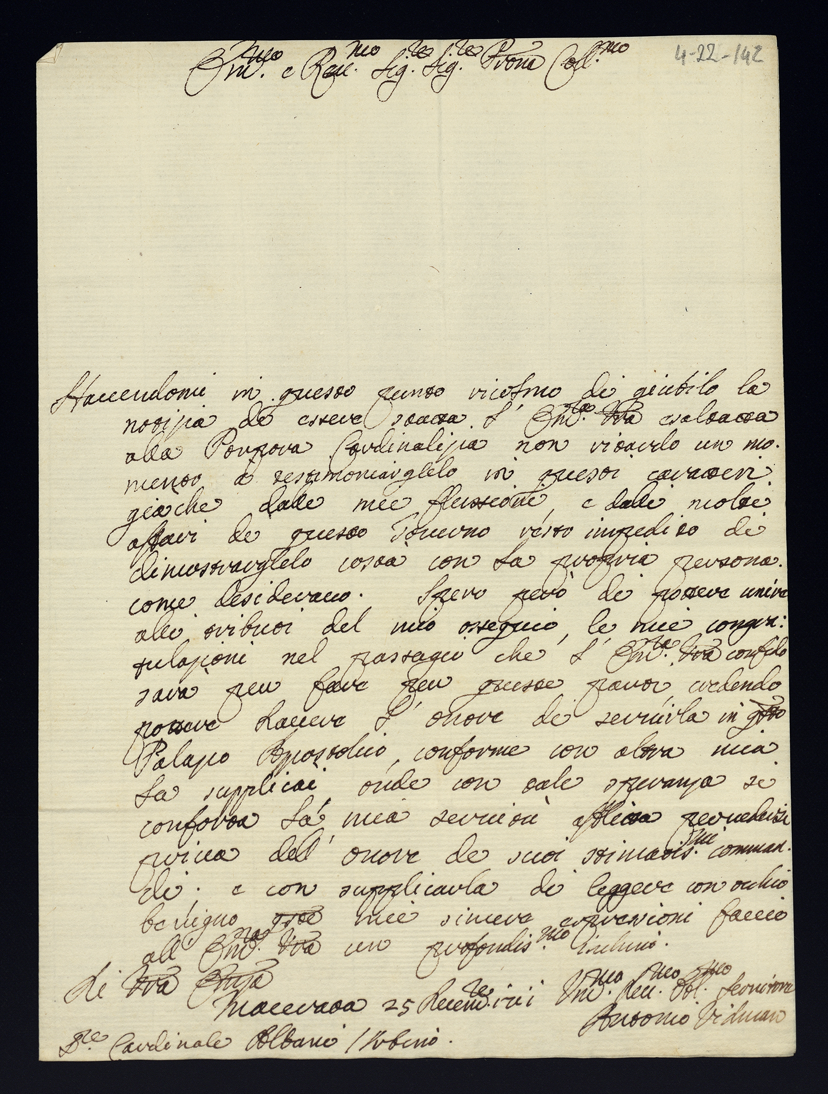 4-22-142
Em.mo e Rev.mo Sig.re Sig.re Prone Coll.mo
Havendomi in questo punto ricolmo di giubilo la
notizia de essere stata l' Em.za Vra esaltata
alla Porpora Cardinalizia non ritardo un mo-
mento a testimoniarglielo in questi caratteri
giache dalle mie flussioni, e dalli molti
affari de questo Governo resto impedito di
dimostrarglielo costà con la propria persona.
come desideravo. Spero però di potere unire
alli tributi del mio ossequio, le mie congra:
tulazioni nel passagio che l' Em.za Vra
sarà per fare per queste parti, credendo
potere havere l' onore de servirla in qsto
Palazo Apostolico, conforme con altra mia
La supplicai, onde con tale speranza si
conforta La mia servitù
priva dell' onore de suoi stimatis.mi comman-
di. e con supplicarla di leggere con ochio
benigno qste mie sincere espressioni faccio
all' Em.za Vra un profondis.mo inchino.
Di Vra Emza
Macerata 25
Um.mo Dev.mo Obl.mo Servitore
Antonio Vidman
S.re Cardinale Albani / Urbino.